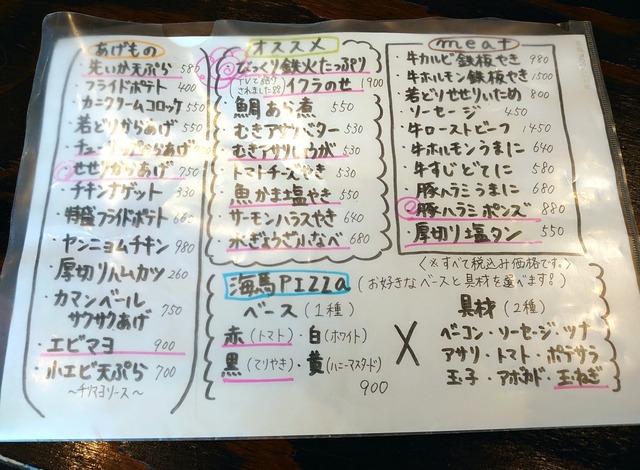 あげもの
先いか天ぷら 580
フライドポテト 400
カニクリームコロッケ 550
・若どりからあげ 550
・チューリップからあげ
せせりからあげ 750
チキンナゲット 330
・特盛フライドポテト 660
・ヤンニョムチキン 980
・厚切りハムカツ 260
・カマンベール
サクサクあげ 750
・エビマヨ 900
・小エビ天ぷら 700
～チリマヨソース～
オススメ
びっくり鉄火たっぷり
イクラのせ 1900
・鯛あら煮 550
・むきアサリバター 530
・むきアサリしょうが 530
・トマトチーズやき 530
・魚かま塩やき 550
・サーモンハラスやき 640
・水ぎょうざふなべ 680
meat
・牛カルビ鉄板やき 980
・牛ホルモン鉄板やき 1500
・若どりせせりいため 800
・ソーセージ 450
・牛ローストビーフ 1450
・牛ホルモンうまに 640
・牛すじどてに 580
・豚ハラミうまに 680
豚ハラミポンズ 880
・厚切り塩タン 550
(※すべて税込み価格です。)
海馬PIZZa (お好きなベースと具材を選べます!)
ベース (1種)
赤(トマト)・白(ホワイト)
黒(てりやき)・黄(ハニーマスタード)
900
×
具材 (2種)
ベーコン・ソーセージ・ツナ
アサリ・トマト・ポテサラ
玉子・アボカド・玉ねぎ